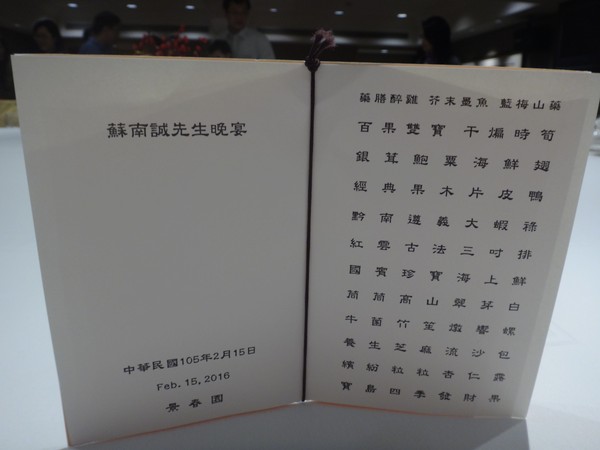 蘇南誠先生晚宴
中華民國105年2月15日
Feb. 15, 2016
景春園
藥膳醉雞 芥末墨魚 藍莓山藥
百果雙寶 干煸時筍
銀茸鮑粟海鮮翅
經典果木片皮鴨
黔南遵義大蝦祿
紅雲古法三吋排
國賓珍寶海上鮮
筒筒高山翠芽白
牛菌竹笙燉響螺
養生芝麻流沙包
繽紛粒粒杏仁露
寶島四季發財果